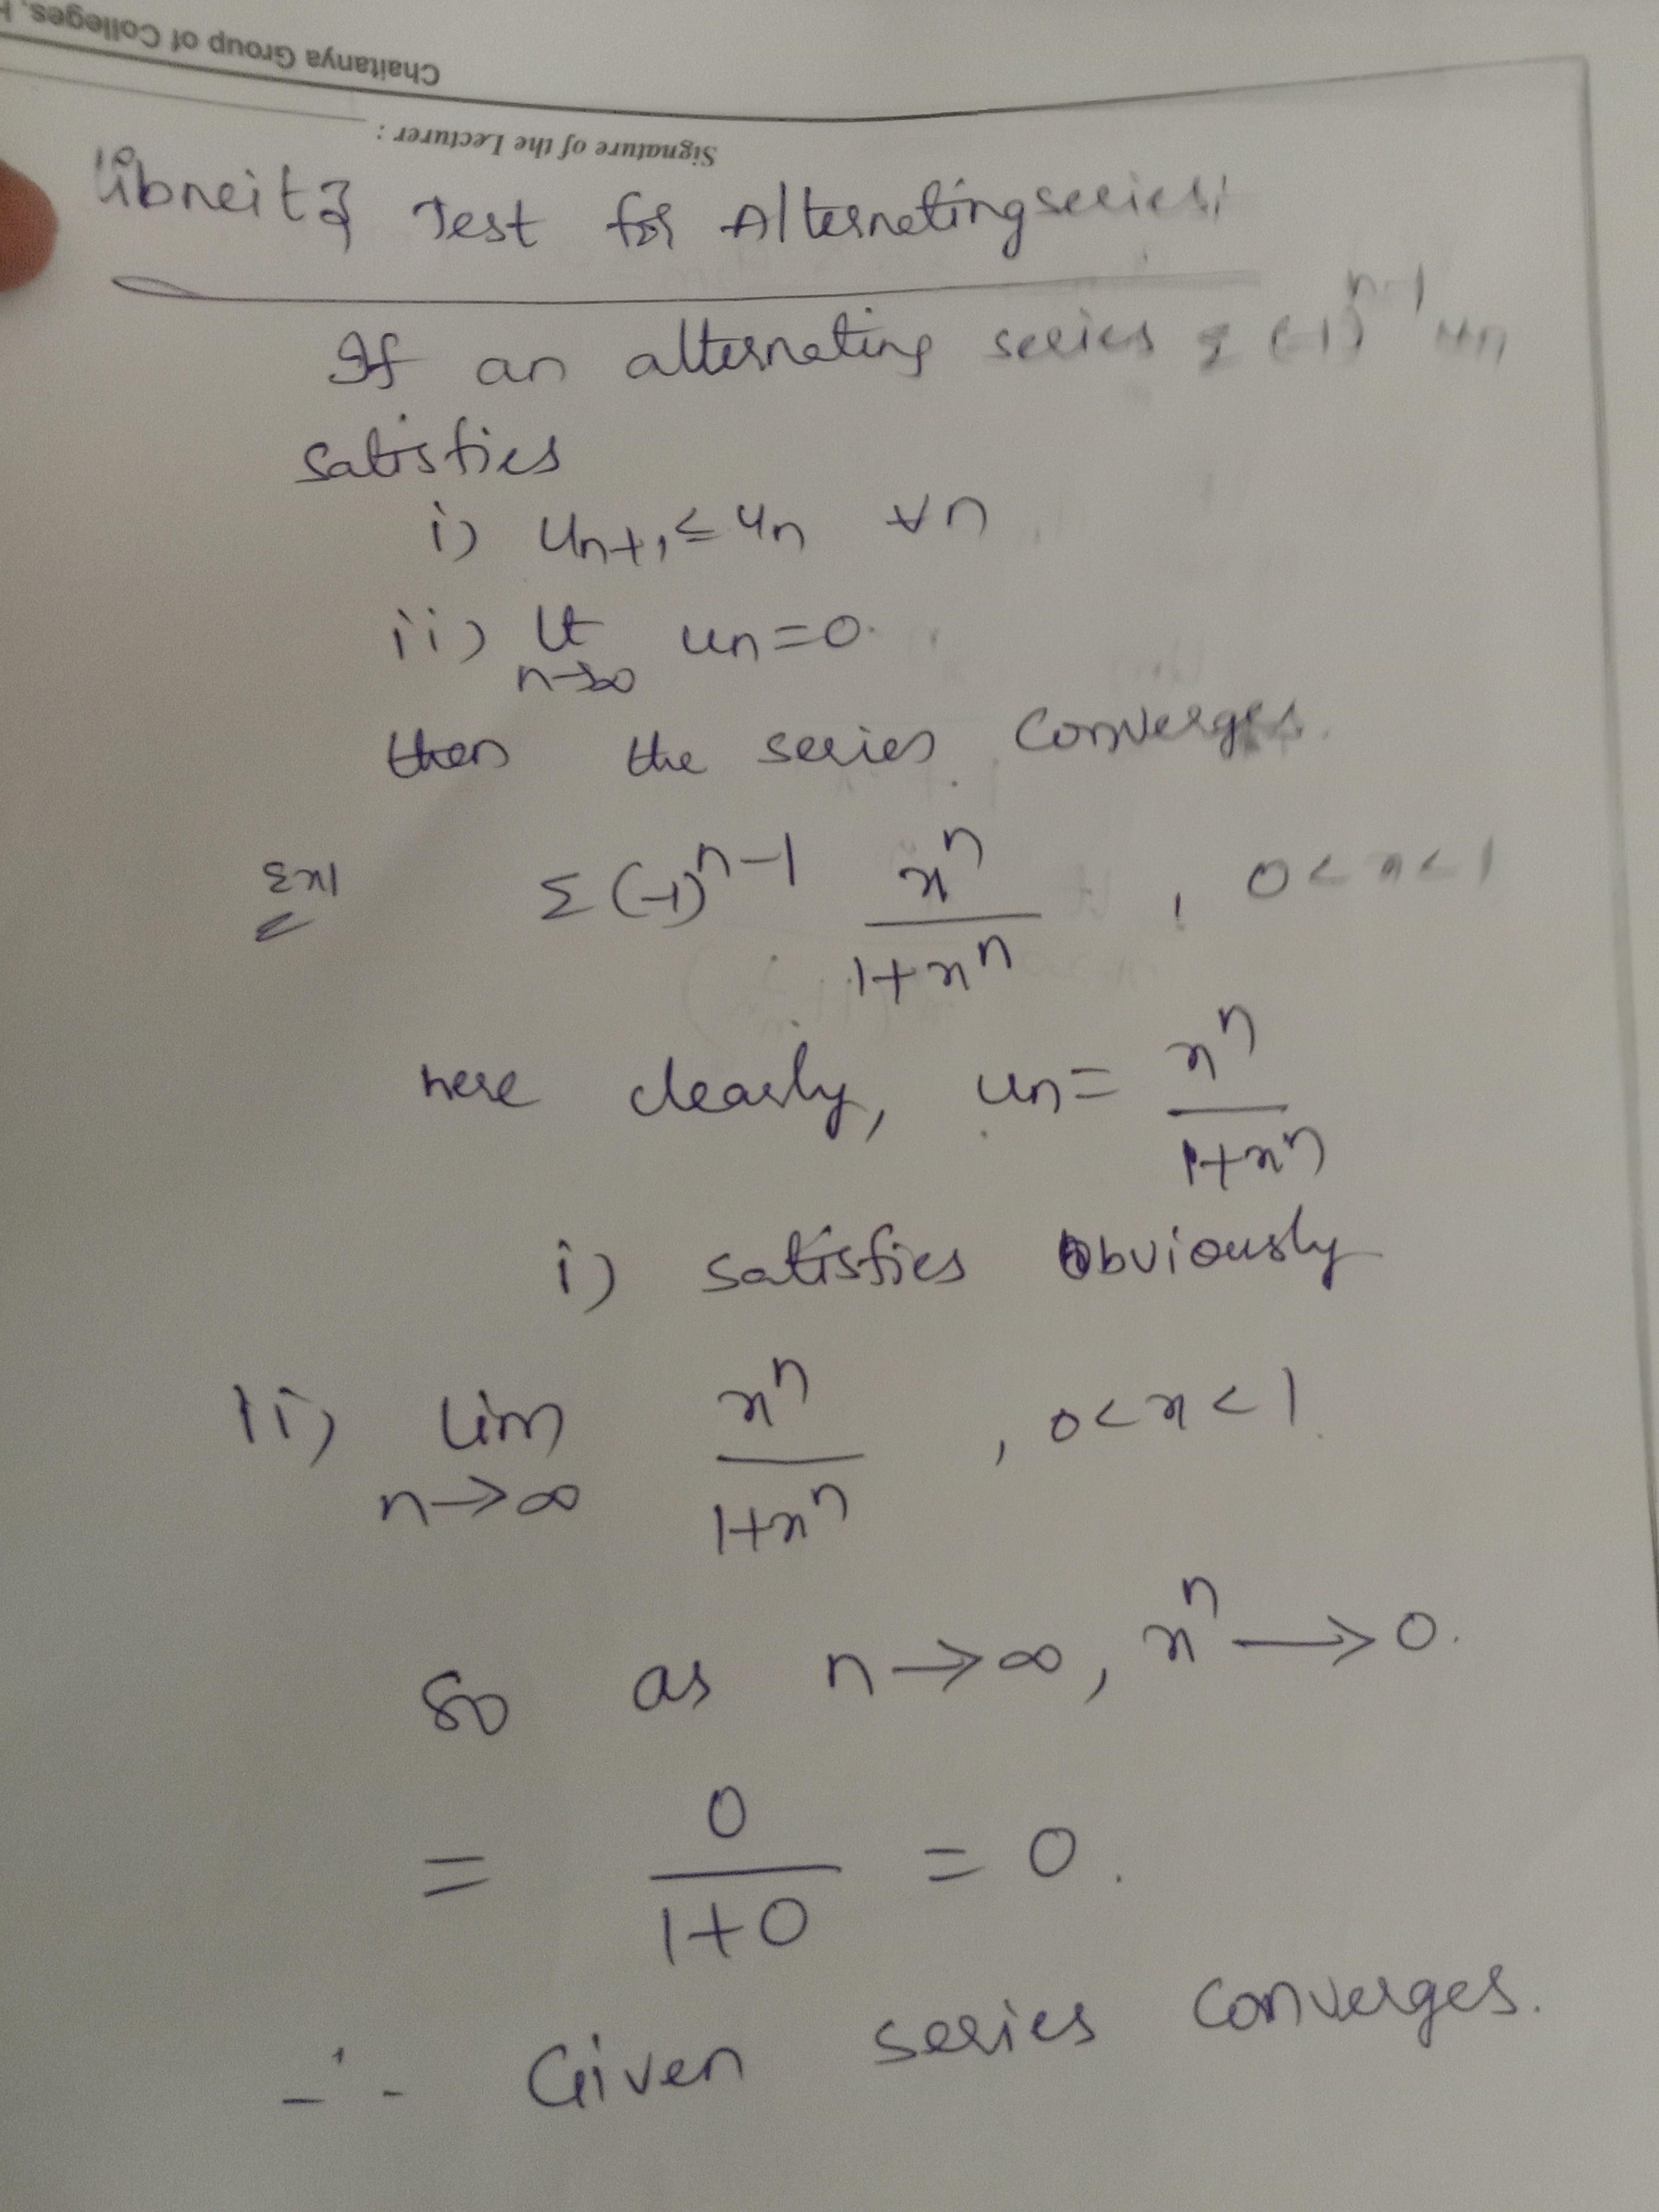 Chaitanya Group of Colleges,
Signature of the Lecturer :
libneitz Test for Alternating series:
If an alternating series Σ (-1)^{n-1} u_n
satisfies
i) u_{n+1} ≤ u_n ∀n
ii) lt_{n→∞} u_n = 0.
then the series Converges.
Ex1 Σ (-1)^{n-1} x^n / (1+x^n) , 0<x<1
here clearly, u_n = x^n / (1+x^n)
i) satisfies obviously
ii) lim_{n→∞} x^n / (1+x^n) , 0<x<1.
So as n→∞, x^n → 0.
= 0 / (1+0) = 0.
∴ Given series Converges.